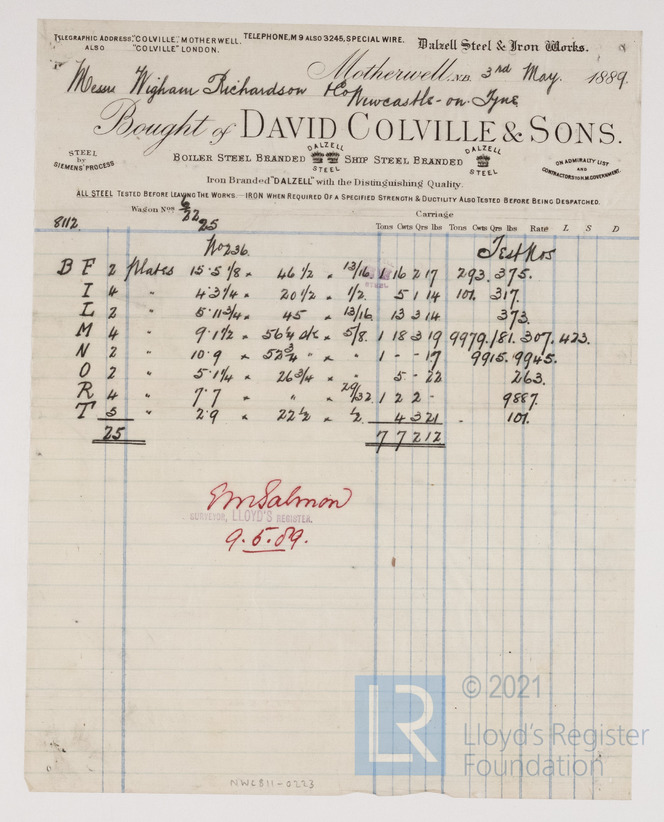 TELEGRAPHIC ADDRESS, "COLVILLE", MOTHERWELL. TELEPHONE, M 9 ALSO 3245, SPECIAL WIRE. Dalzell Steel & Iron Works.
ALSO "COLVILLE" LONDON.
Motherwell, N.B. 3rd May. 1889.
Messrs Wigham Richardson & Co
Newcastle-on-Tyne
Bought of DAVID COLVILLE & SONS.
STEEL by SIEMENS' PROCESS
BOILER STEEL BRANDED DALZELL STEEL SHIP STEEL BRANDED DALZELL STEEL
ON ADMIRALTY LIST AND CONTRACTORS TO H.M. GOVERNMENT.
Iron Branded "DALZELL" with the Distinguishing Quality.
ALL STEEL TESTED BEFORE LEAVING THE WORKS.—IRON WHEN REQUIRED OF A SPECIFIED STRENGTH & DUCTILITY ALSO TESTED BEFORE BEING DESPATCHED.
Wagon Nos. 6/22 25 Carriage
8112. Tons Cwts Qrs lbs Tons Cwts Qrs lbs Rate L S D
No 236. Test Nos
B F 2 plates 15.5 1/8 × 46 1/2 × 13/16 1 16 2 17 293. 375.
I 4 " 4.3 1/4 × 20 1/2 × 1/2. 5 1 14 101. 317.
L 2 " 5.11 3/4 × 45 × 13/16 13 3 14 373.
M 4 " 9.1 1/2 × 56 1/4 × 5/8. 1 18 3 19 9979./81. 307. 423.
N 2 " 10.9 × 52 3/4 " × " 1 - - 17 9915. 9945.
O 2 " 5.1 1/4 × 26 3/4 × " 5 - 22 263.
R 4 " 7.7 × " × 29/32 1 2 2 - 9887.
T 5 " 2.9 × 22 1/2 × 1/2. 4 3 21 101.
25 7 7 2 12
E M Salmon
SURVEYOR, LLOYD'S REGISTER.
9.5.89.
LR © 2021
Lloyd's Register
Foundation
NWC811-0223